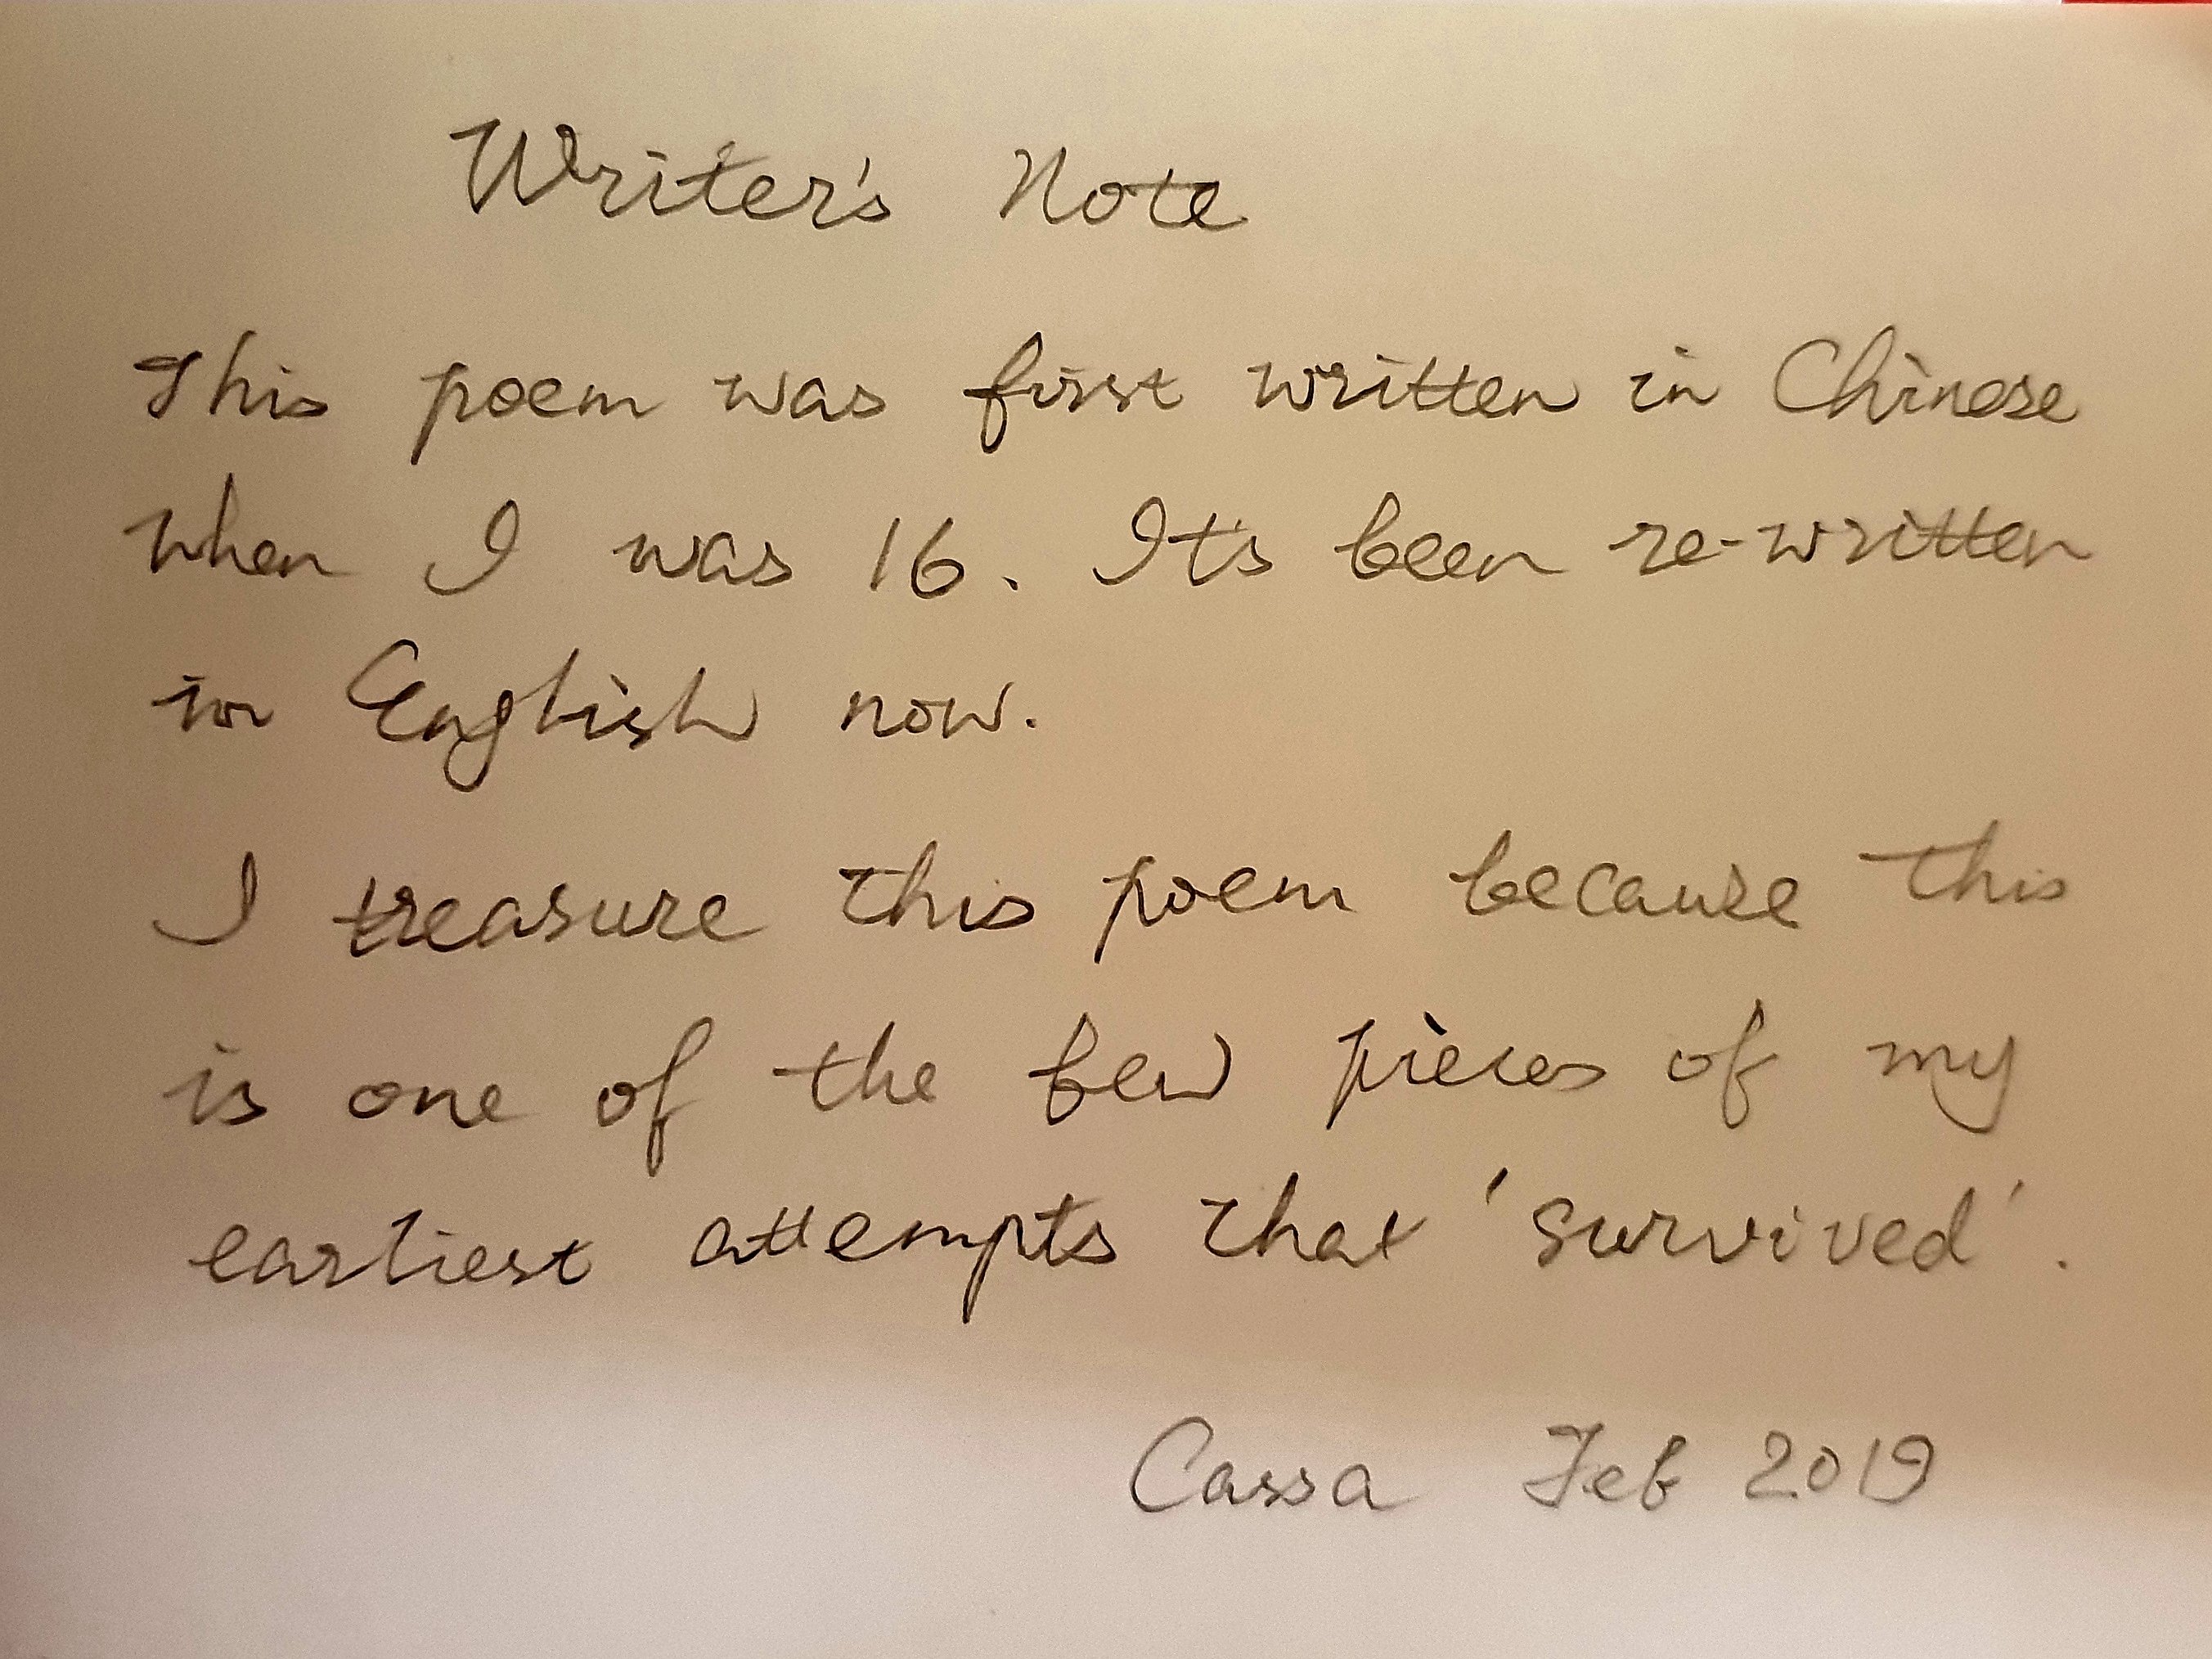 Writer's Note
This poem was first written in Chinese
when I was 16. It's been re-written
in English now.
I treasure this poem because this
is one of the few pieces of my
earliest attempts that 'survived'.
Cassa Feb 2019